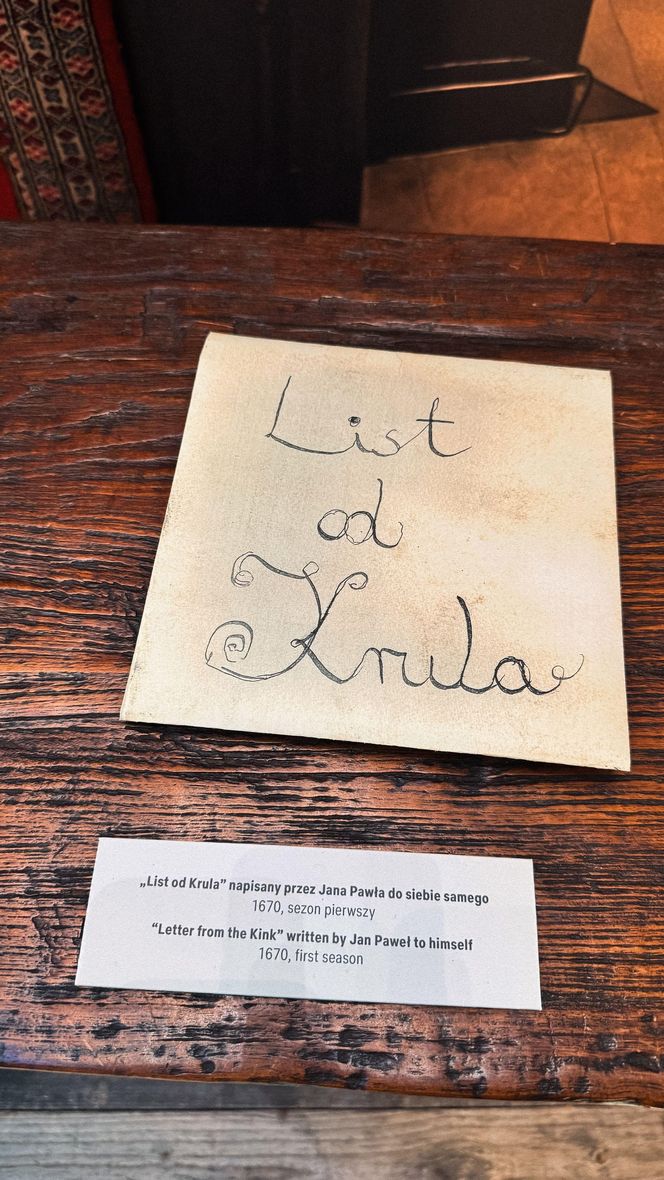 List
od
Krula
„List od Krula” napisany przez Jana Pawła do siebie samego
1670, sezon pierwszy
“Letter from the Kink” written by Jan Paweł to himself
1670, first season